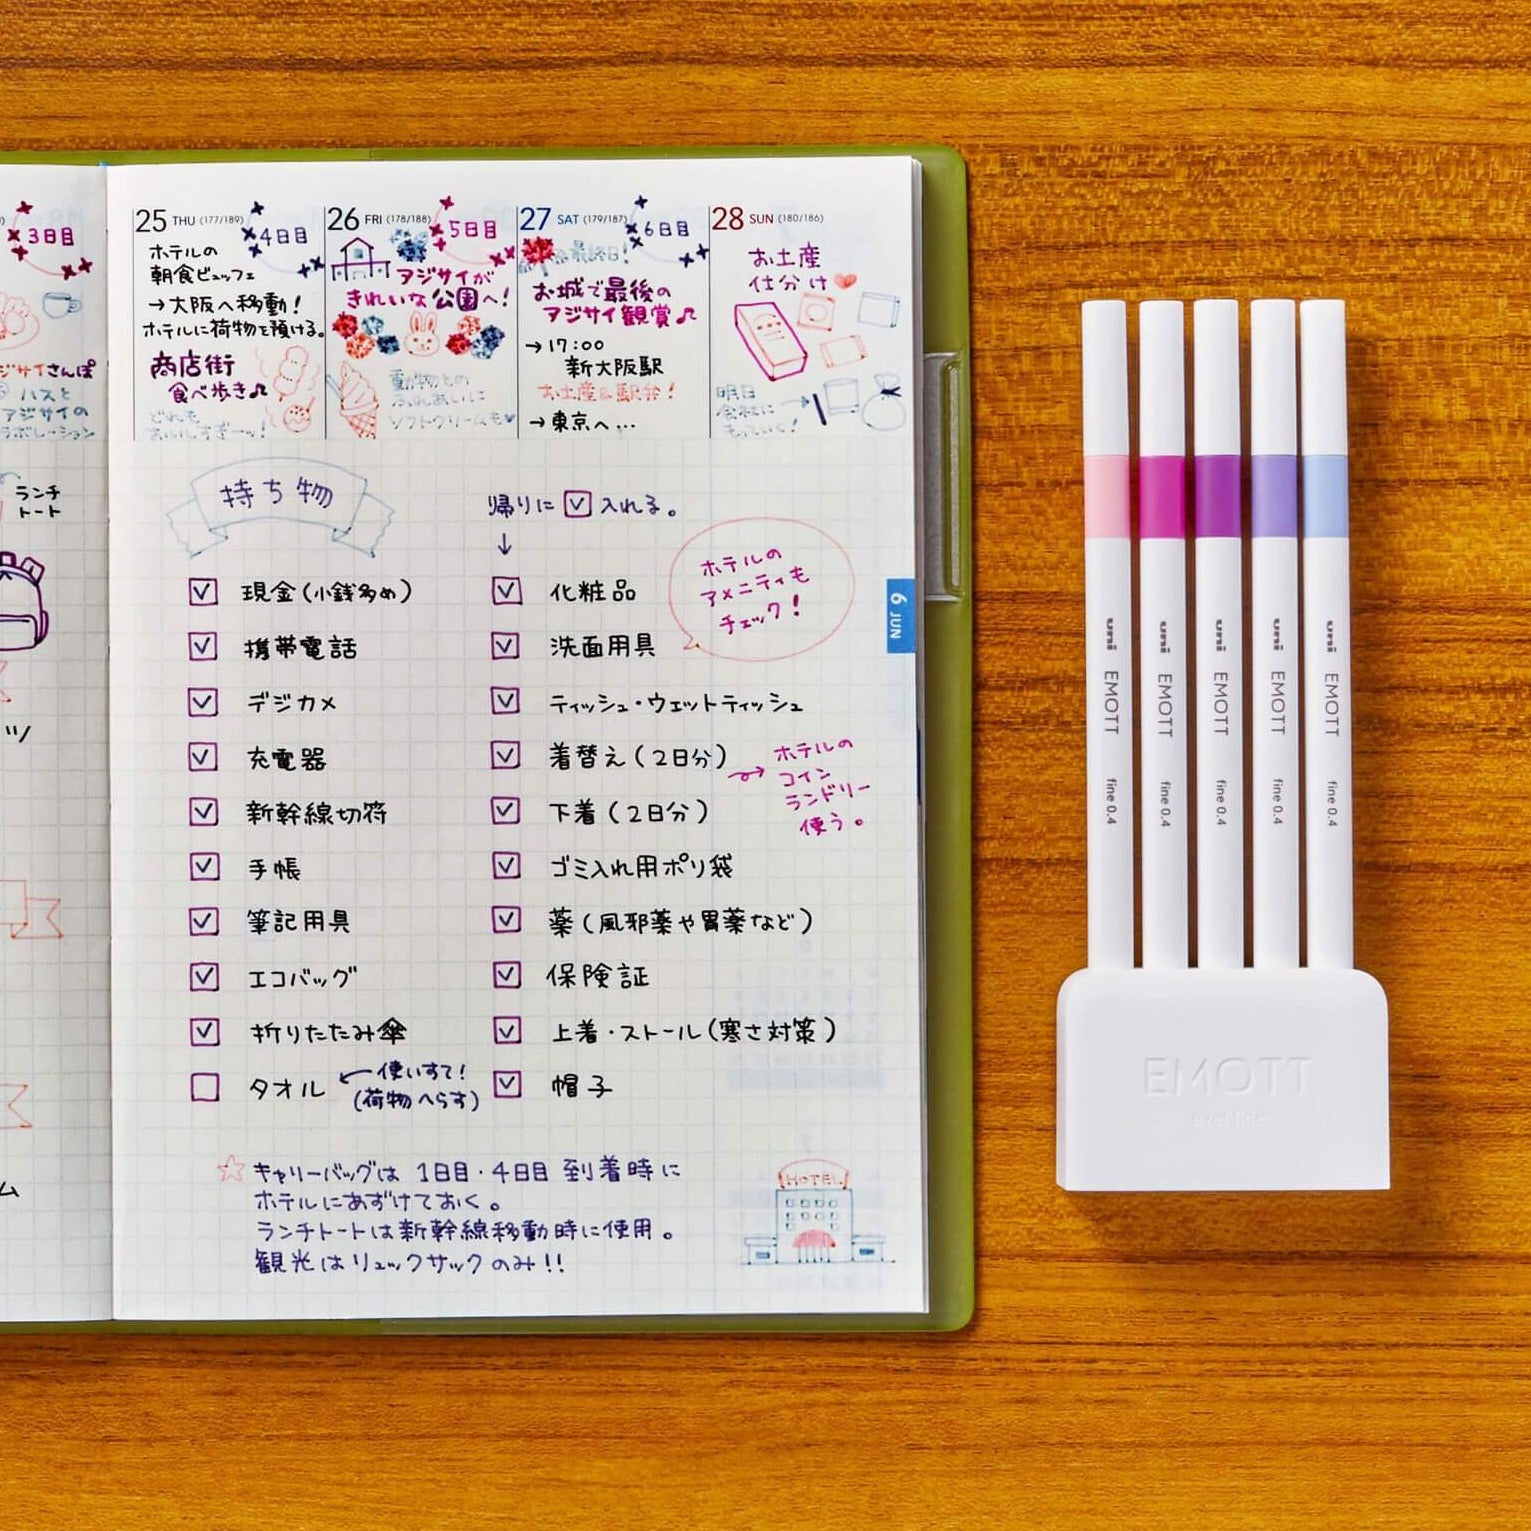 3日目
ジサイさんぽ
ハスと
アジサイの
ラボレーション
ランチ
トート
ツ
ム
25 THU (177/189)
4日目
ホテルの
朝食ビュッフェ
→大阪へ移動!
ホテルに荷物を預ける。
商店街
食べ歩き♪
どれも
おいしすぎーッ!
26 FRI (178/188)
5日目
アジサイが
きれいな公園へ!
動物との
ふれあいに
ソフトクリームも
27 SAT (179/187)
6日目
最終日!
お城で最後の
アジサイ観賞♪
→17:00
新大阪駅
お土産&駅弁!
→東京へ…
28 SUN (180/186)
お土産
仕分け
明日
会社に
もっていく!
持ち物
現金(小銭多め)
携帯電話
デジカメ
充電器
新幹線切符
手帳
筆記用具
エコバッグ
折りたたみ傘
タオル
使いすて!
(荷物へらす)
帰りに☑入れる。
↓
化粧品
洗面用具
ティッシュ・ウェットティッシュ
着替え(2日分)
下着(2日分)
ゴミ入れ用ポリ袋
薬(風邪薬や胃薬など)
保険証
上着・ストール(寒さ対策)
帽子
ホテルの
アメニティも
チェック!
ホテルの
コイン
ランドリー
使う。
6 JUN
☆キャリーバッグは 1日目・4日目 到着時に
ホテルにあずけておく。
ランチトートは新幹線移動時に使用。
観光はリュックサックのみ!!
HOTEL
uni EMOTT fine 0.4
uni EMOTT fine 0.4
uni EMOTT fine 0.4
uni EMOTT fine 0.4
uni EMOTT fine 0.4
EMOTT
ever fine